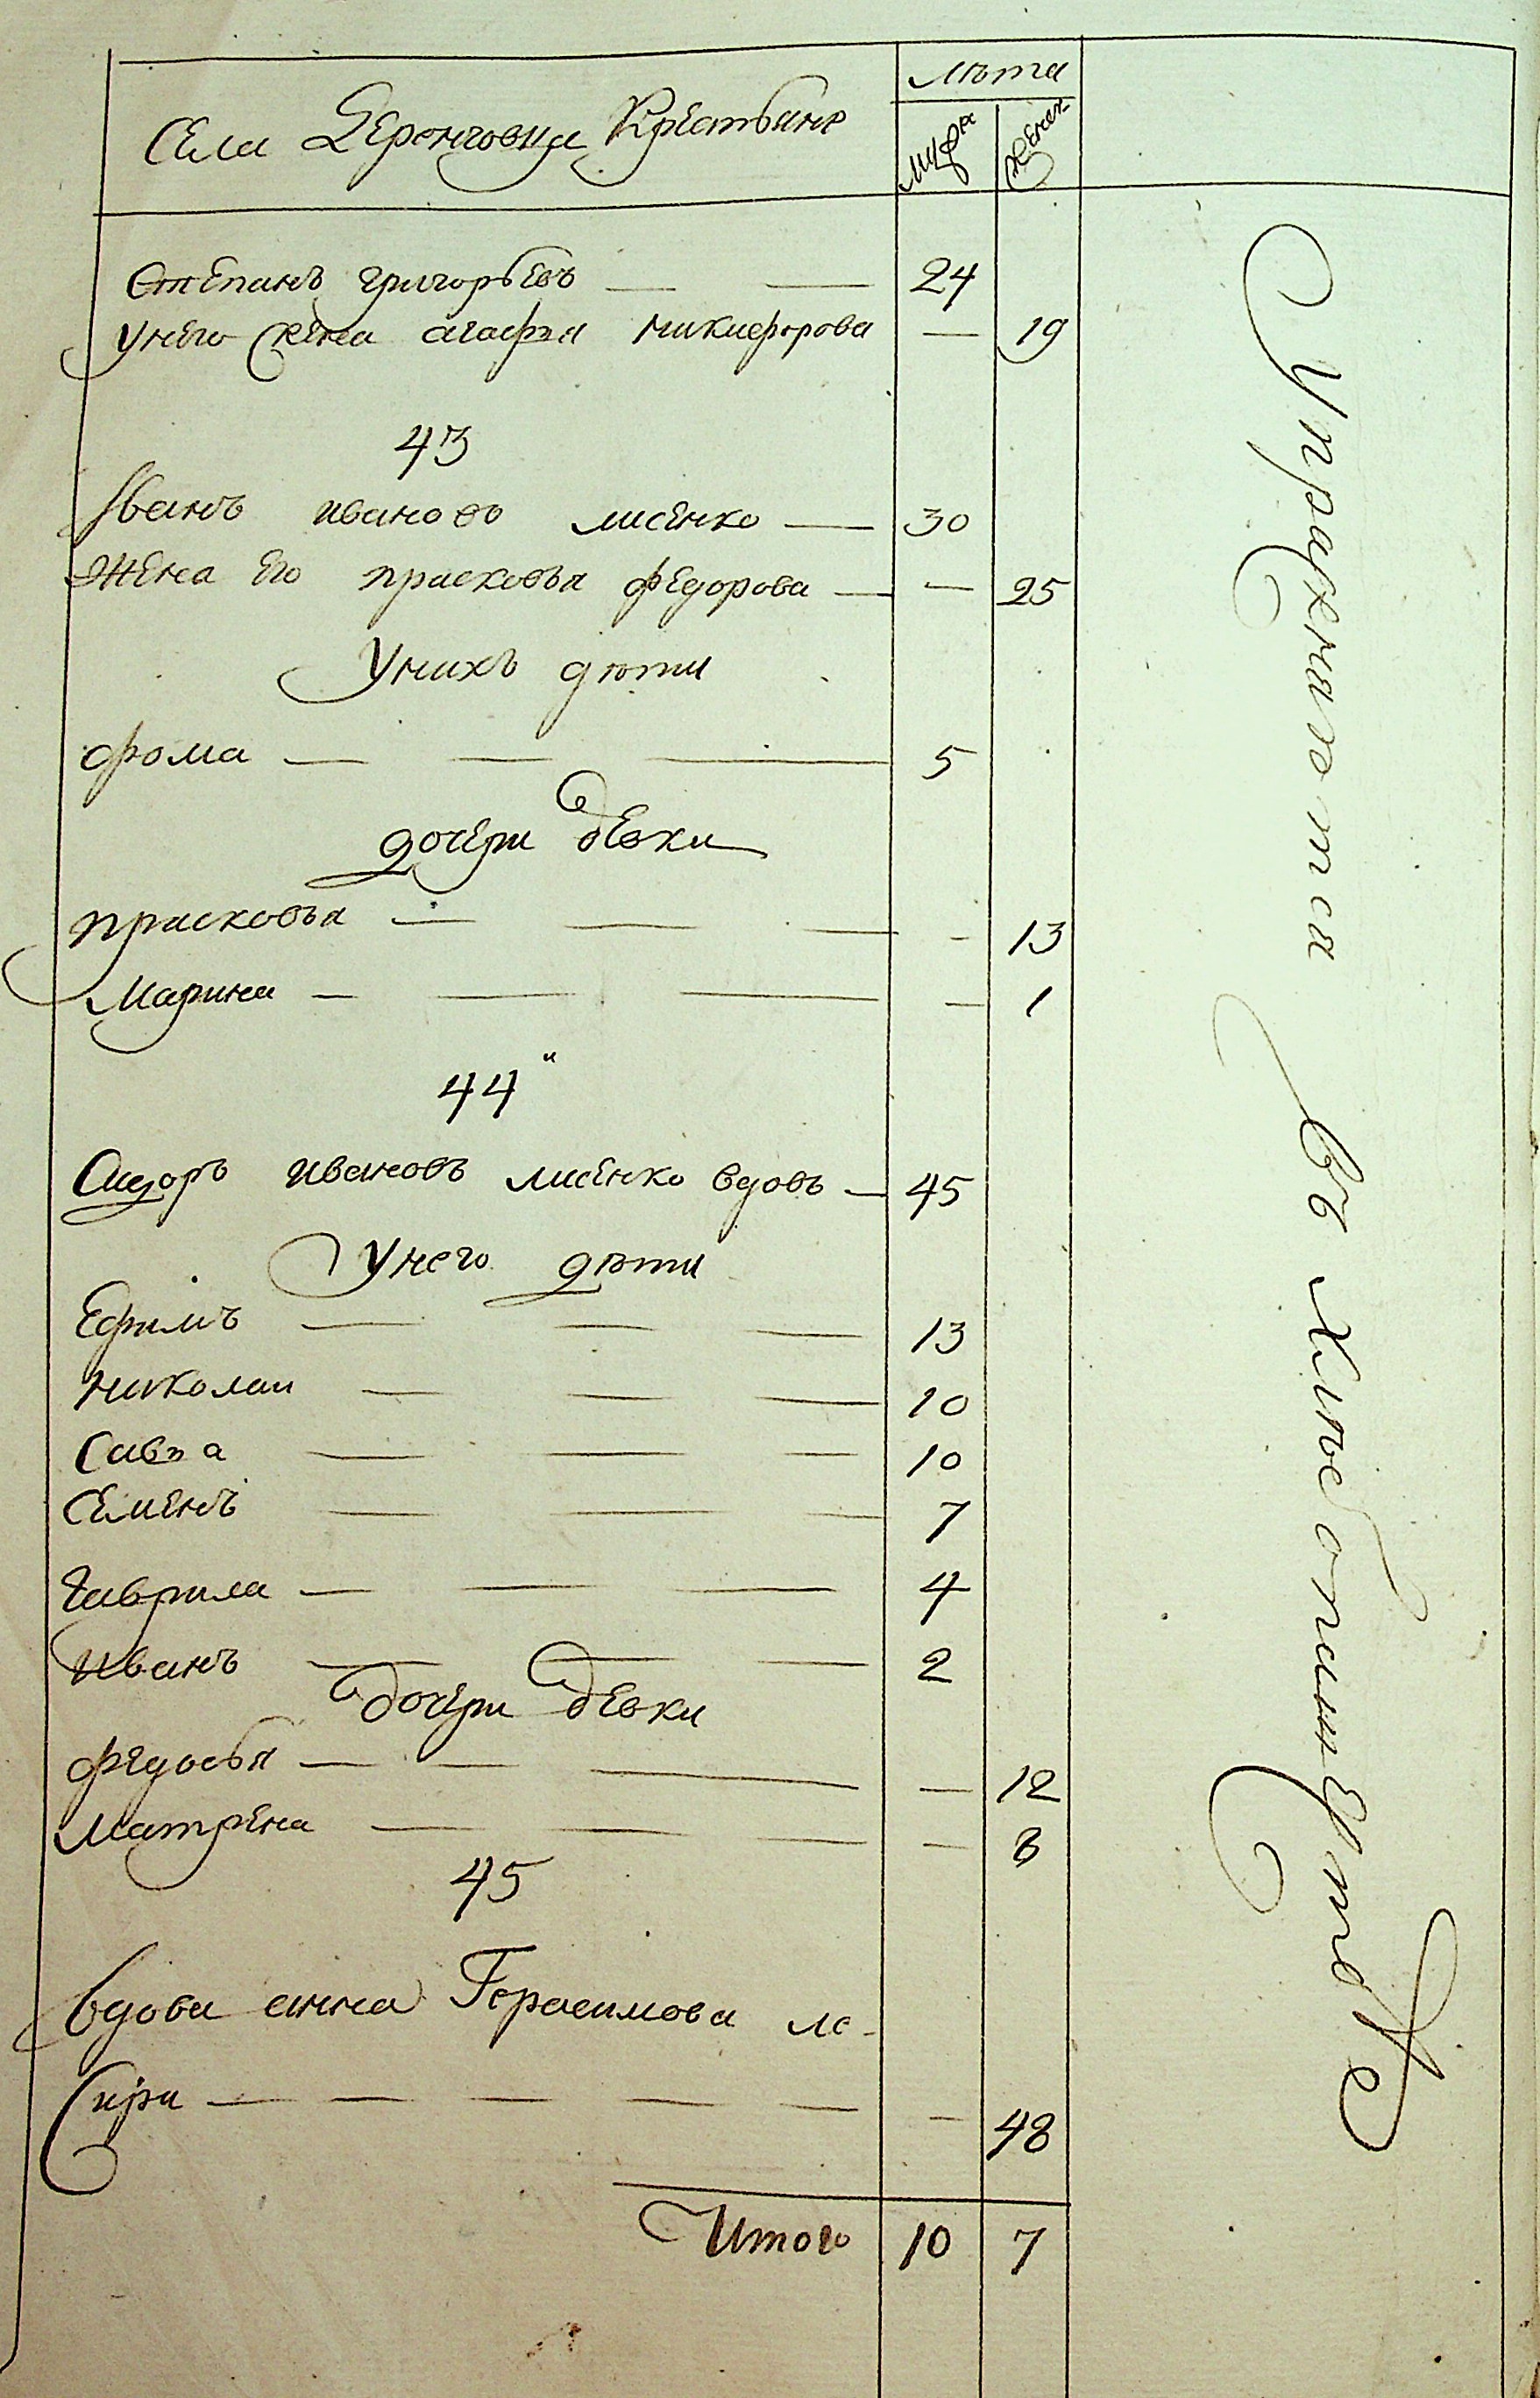 Села Деренговца Крестьяне
лѣта
муж
женск
Степанъ григорьевъ — — 24
Унего жена агафия никифорова — 19
43
Иванъ ивановъ лисенко — 30
Жена Его прасковья федорова — — 25
Унихъ дѣти
фома — — — 5
дочери девки
прасковья — — — - 13
Марина — — — — 1
44
Сидоръ ивановъ лисенко вдовъ — 45
Унего дѣти
Ефимъ — — — 13
николаи — — — 10
Савва — — — 10
Семенъ — — — 7
Гаврила — — — 4
иванъ — — — 2
дочери девки
федосья — — — — 12
матрена — — — — 8
45
вдова анна Герасимова ле-
— — — — — - 48
Итого 10 7
Упражняютса въ хлѣбопашестве